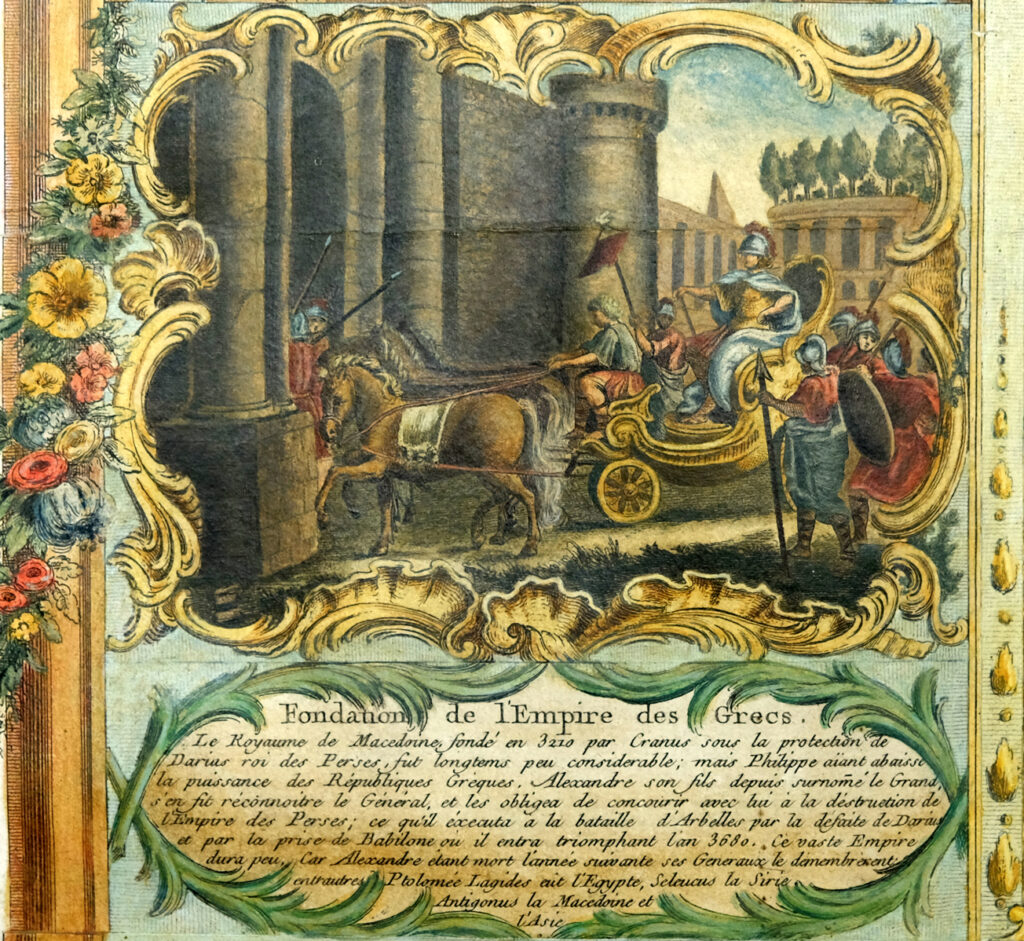 Fondation de l'Empire des Grecs.
Le Royaume de Macedoine, fondé en 3210 par Cranus sous la protection de
Darius roi des Perses, fut longtems peu considerable; mais Philippe aiant abaissé
la puissance des Républiques Greques, Alexandre son fils depuis surnomé le Grand,
s'en fit reconnoitre le Général, et les obligea de concourir avec lui à la destruction de
l'Empire des Perses; ce qu'il éxecuta a la bataille d'Arbelles par la defaite de Darius
et par la prise de Babilone ou il entra triomphant l'an 3680. Ce vaste Empire
dura peu, Car Alexandre etant mort l'année suivante ses Generaux le démembrerent
entrautres Ptolomée Lagides eut l'Egypte, Seleucus la Sirie
Antigonus la Macedoine et
l'Asie